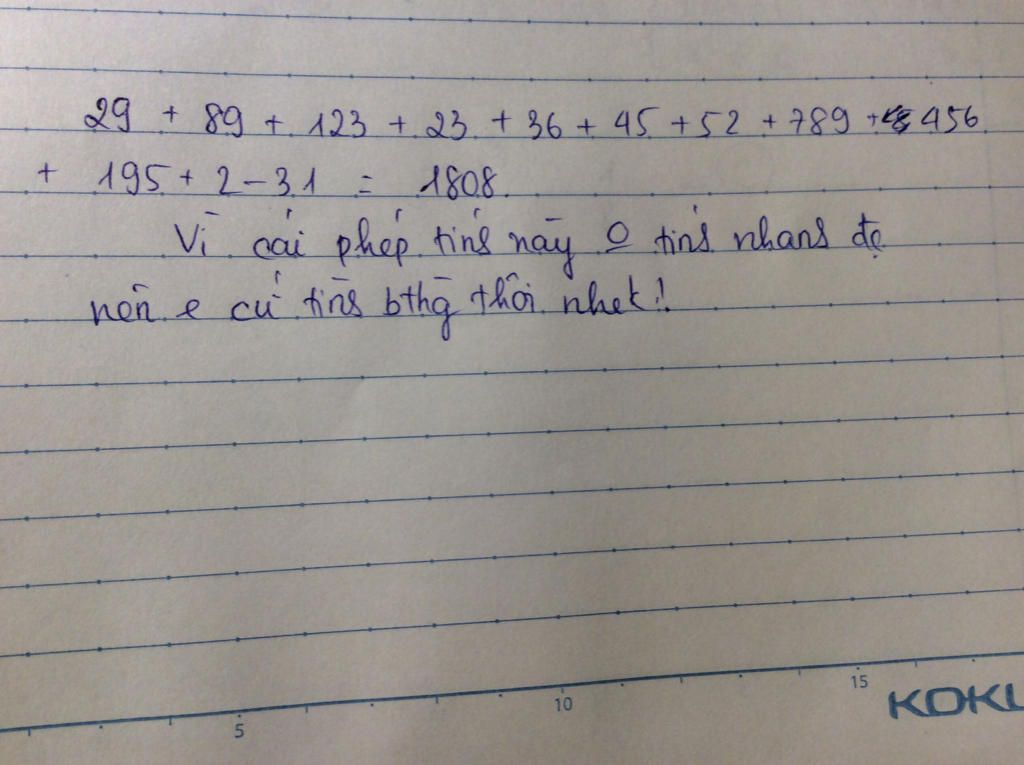 29 + 89 + 123 + 23 + 36 + 45 + 52 + 789 + 456
+ 195 + 2 - 31 = 1808.
Vì cái phép tính này 0 tính nhanh đc
nên e cứ tính bthg thôi nhek!
5
10
15
KOKU